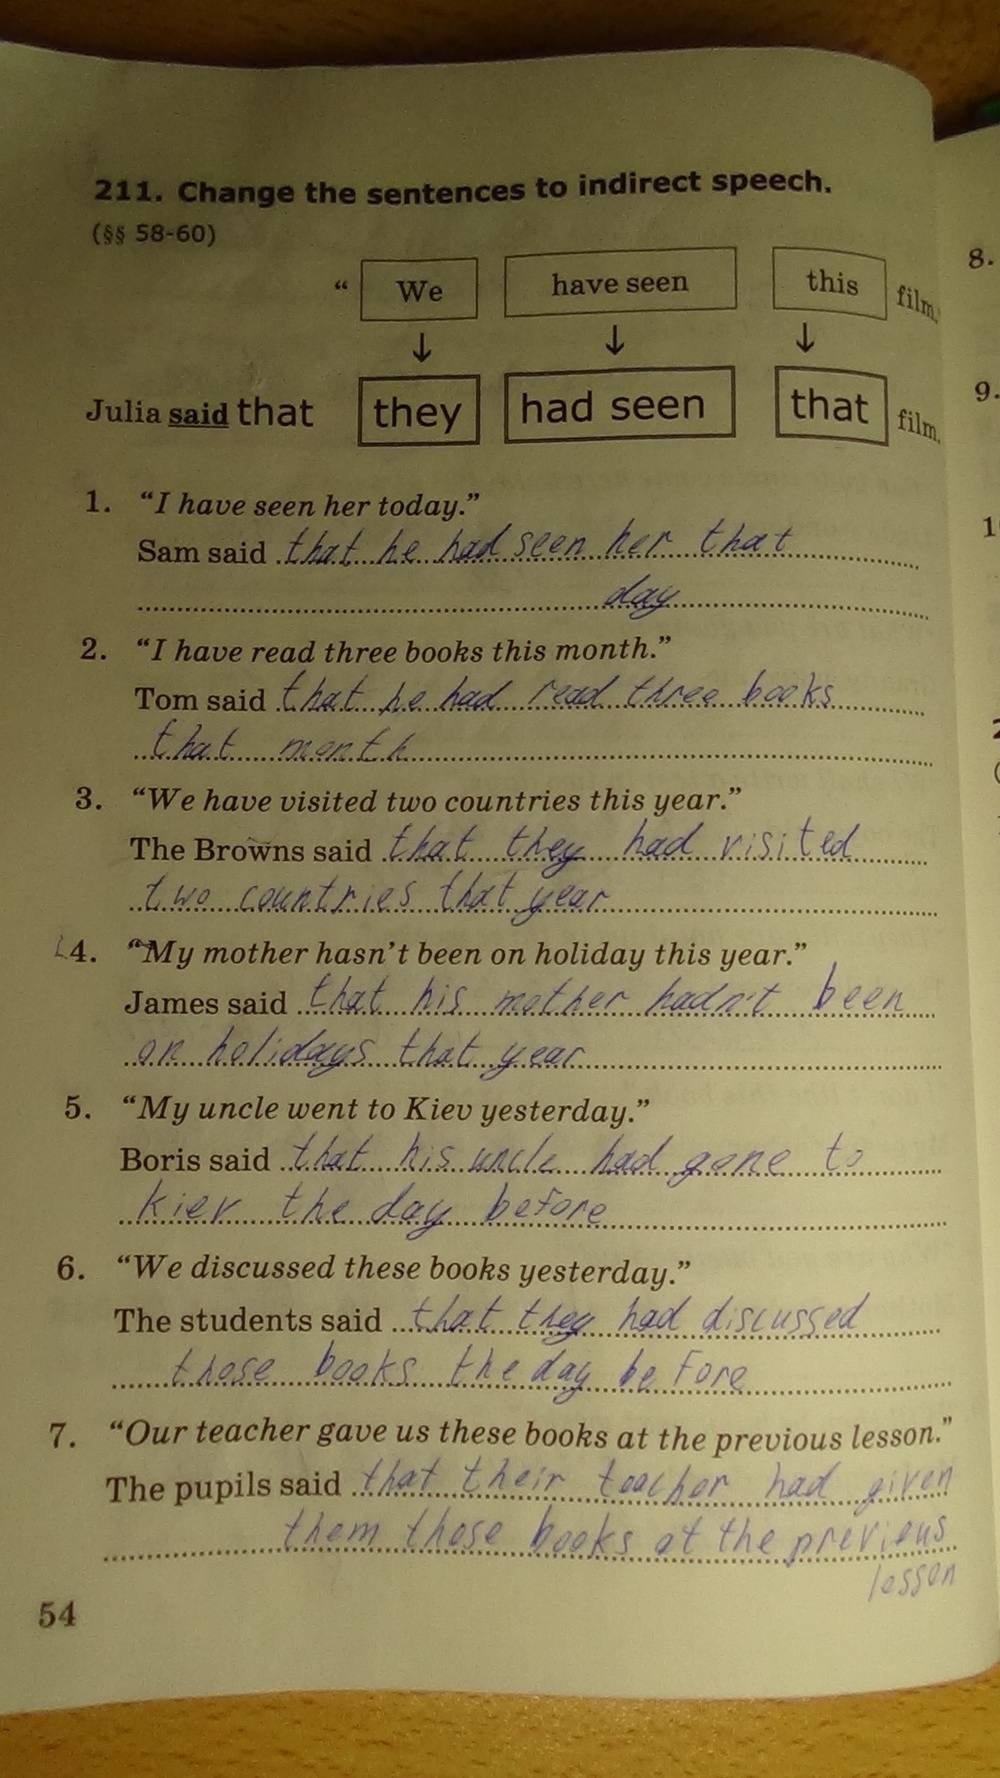 211. Change the sentences to indirect speech.
(§§ 58-60)
“ We have seen this film.”
↓ ↓ ↓
Julia said that they had seen that film.
1. “I have seen her today.”
Sam said that he had seen her that
day
2. “I have read three books this month.”
Tom said that he had read three books
that month
3. “We have visited two countries this year.”
The Browns said that they had visited
two countries that year
4. “My mother hasn’t been on holiday this year.”
James said that his mother hadn't been
on holidays that year
5. “My uncle went to Kiev yesterday.”
Boris said that his uncle had gone to
Kiev the day before
6. “We discussed these books yesterday.”
The students said that they had discussed
those books the day before
7. “Our teacher gave us these books at the previous lesson.”
The pupils said that their teacher had given
them those books at the previous
lesson
54
8.
9.
1